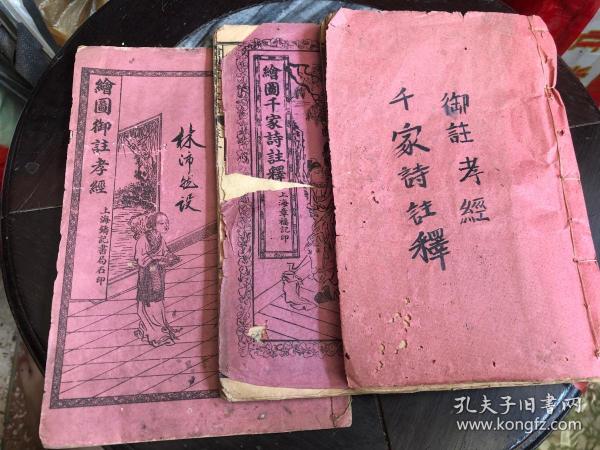 繪圖御註孝經
上海鑄記書局石印
林沛
繪圖千家詩註釋
上海章福記印
御註孝經
千家詩註釋
孔夫子旧书网
www.kongfz.com